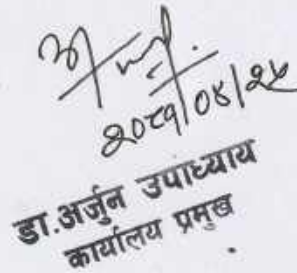 २०८१/०४/२५
डा.अर्जुन उपाध्याय
कार्यालय प्रमुख